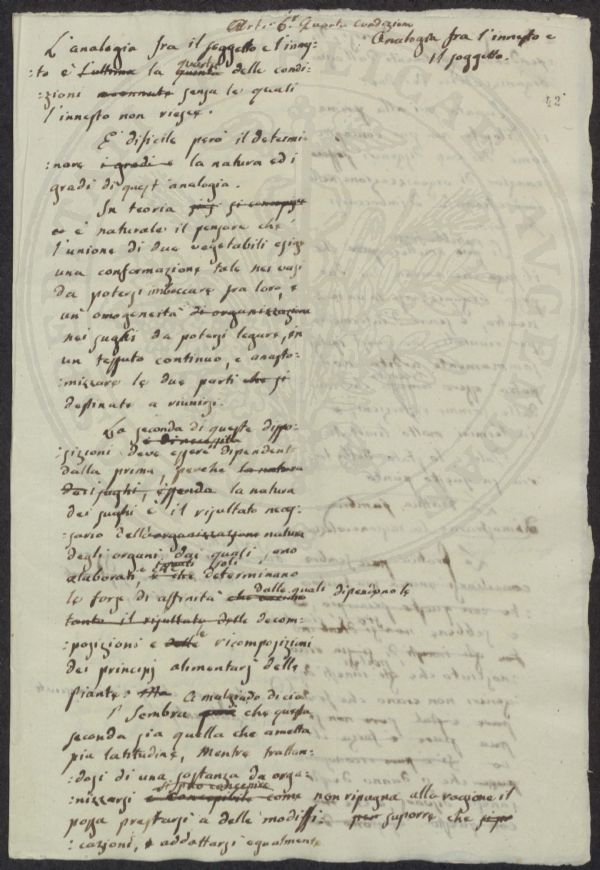 Art. 6.° Quarta Condizione
Analogia fra l'innesto e
il soggetto.
42
L'analogia fra il soggetto e l'inne:
:to è l'ultima la quarta quinta delle condi:
:zioni senza le quali
l'innesto non riesce.
È dificile però il determi:
:nare i gradi e la natura ed i
gradi di quest'analogia.
In teoria
è naturale il pensare che
l'unione di due vegetabili esige
una conformazione tale nei vasi
da potersi imboccare fra loro, e
un'omogeneità di organizzazione
nei sughi da potersi legare, in
un tessuto continuo, e anasto:
:mizzare le due parti che si
destinate a riunirsi.
La seconda di queste dispo:
è di necessità
:sizioni deve essere dipendente
dalla prima, perché la natura
dei sughi, essendo la natura
dei sughi è il risultato neces:
:sario dell'organizzazione natura
degli organi dai quali, sono
elaborati, e i quali soli che determinano
le forze di affinità dalle quali dipendono le
tanto il risultato delle decom:
:posizioni e delle le ricomposizioni
dei principj alimentarj delle
piante. A malgrado di ciò
Sembra che questa
seconda sia quella che ametta
più latitudine, Mentre trattan:
:dosi di una sostanza da orga:
si può concepire
:nizzarsi è concepibile come non ripugna alla ragione il
possa prestarsi a delle modifi: per suporre che
:cazioni, e addattarsi egualmente